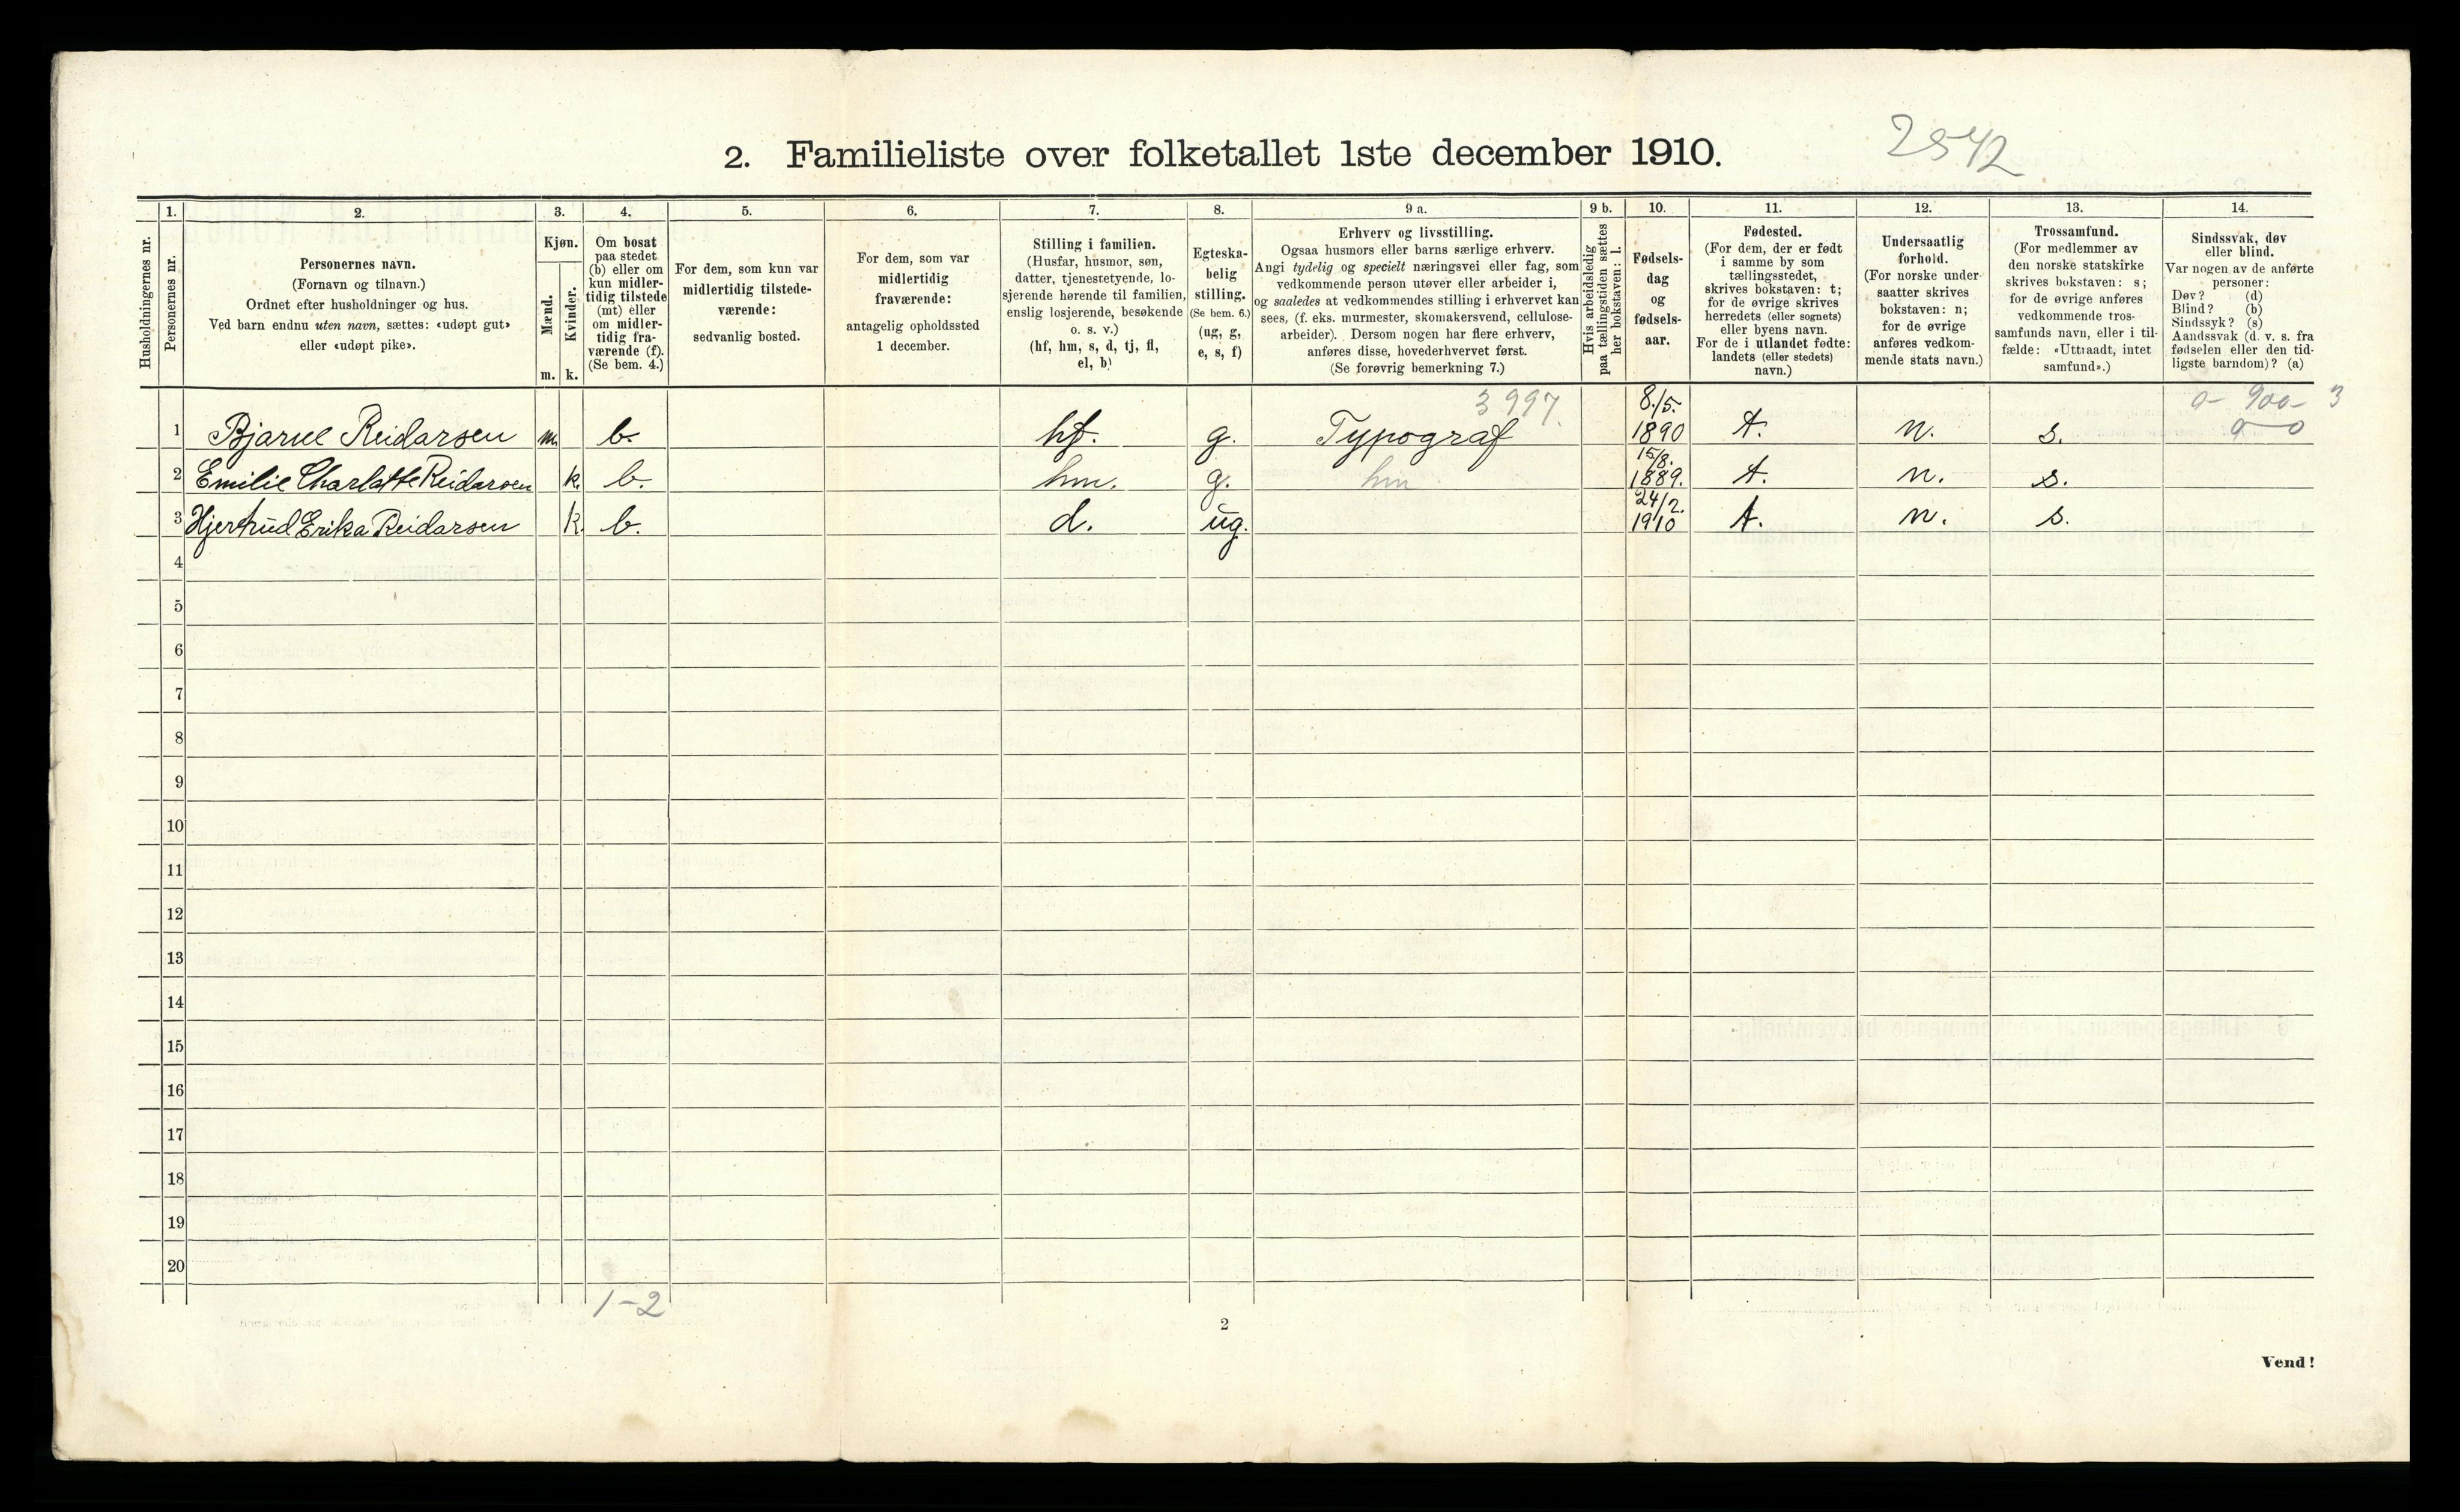 2542
2. Familieliste over folketallet 1ste december 1910.
Husholdningernes nr.
1.
Personernes nr.
2.
Personernes navn.
(Fornavn og tilnavn.)
Ordnet efter husholdninger og hus.
Ved barn endnu uten navn, sættes: «udøpt gut»
eller «udøpt pike».
3.
Kjøn.
Mænd.
m.
Kvinder.
k.
4.
Om bosat
paa stedet
(b) eller om
kun midler-
tidig tilstede
(mt) eller
om midler-
tidig fra-
værende (f).
(Se bem. 4.)
5.
For dem, som kun var
midlertidig tilstede-
værende:
sedvanlig bosted.
6.
For dem, som var
midlertidig
fraværende:
antagelig opholdssted
1 december.
7.
Stilling i familien.
(Husfar, husmor, søn,
datter, tjenestetyende, lo-
sjerende hørende til familien,
enslig losjerende, besøkende
o. s. v.)
(hf, hm, s, d, tj, fl,
el, b)
8.
Egteska-
belig
stilling.
(Se bem. 6.)
(ug, g,
e, s, f)
9 a.
Erhverv og livsstilling.
Ogsaa husmors eller barns særlige erhverv.
Angi tydelig og specielt næringsvei eller fag, som
vedkommende person utøver eller arbeider i,
og saaledes at vedkommendes stilling i erhvervet kan
sees, (f. eks. murmester, skomakersvend, cellulose-
arbeider). Dersom nogen har flere erhverv,
anføres disse, hovederhvervet først.
(Se forøvrig bemerkning 7.)
9 b.
Hvis arbeidsledig
paa tællingstiden sættes
her bokstaven: l.
10.
Fødsels-
dag
og
fødsels-
aar.
11.
Fødested.
(For dem, der er født
i samme by som
tællingsstedet,
skrives bokstaven: t;
for de øvrige skrives
herredets (eller sognets)
eller byens navn.
For de i utlandet fødte:
landets (eller stedets)
navn.)
12.
Undersaatlig
forhold.
(For norske under-
saatter skrives
bokstaven: n;
for de øvrige
anføres vedkom-
mende stats navn.)
13.
Trossamfund.
(For medlemmer av
den norske statskirke
skrives bokstaven: s;
for de øvrige anføres
vedkommende tros-
samfunds navn, eller i til-
fælde: «Uttraadt, intet
samfund».)
14.
Sindssvak, døv
eller blind.
Var nogen av de anførte
personer:
Døv? (d)
Blind? (b)
Sindssyk? (s)
Aandssvak (d. v. s. fra
fødselen eller den tid-
ligste barndom)? (a)
3997. 0- 900- 3
1 Bjarne Reidarsen m. b. hf. g. Typograf 8./5. 1890 t. n. s. 0
2 Emilie Charlotte Reidarsen k. b. hm. g. hm 15/8. 1889. t. n. s.
3 Hjertrud Erika Reidarsen k. b. d. ug. 24/2. 1910 t. n. s.
4
5
6
7
8
9
10
11
12
13
14
15
16
17
18
19
20
1-2
2
Vend!